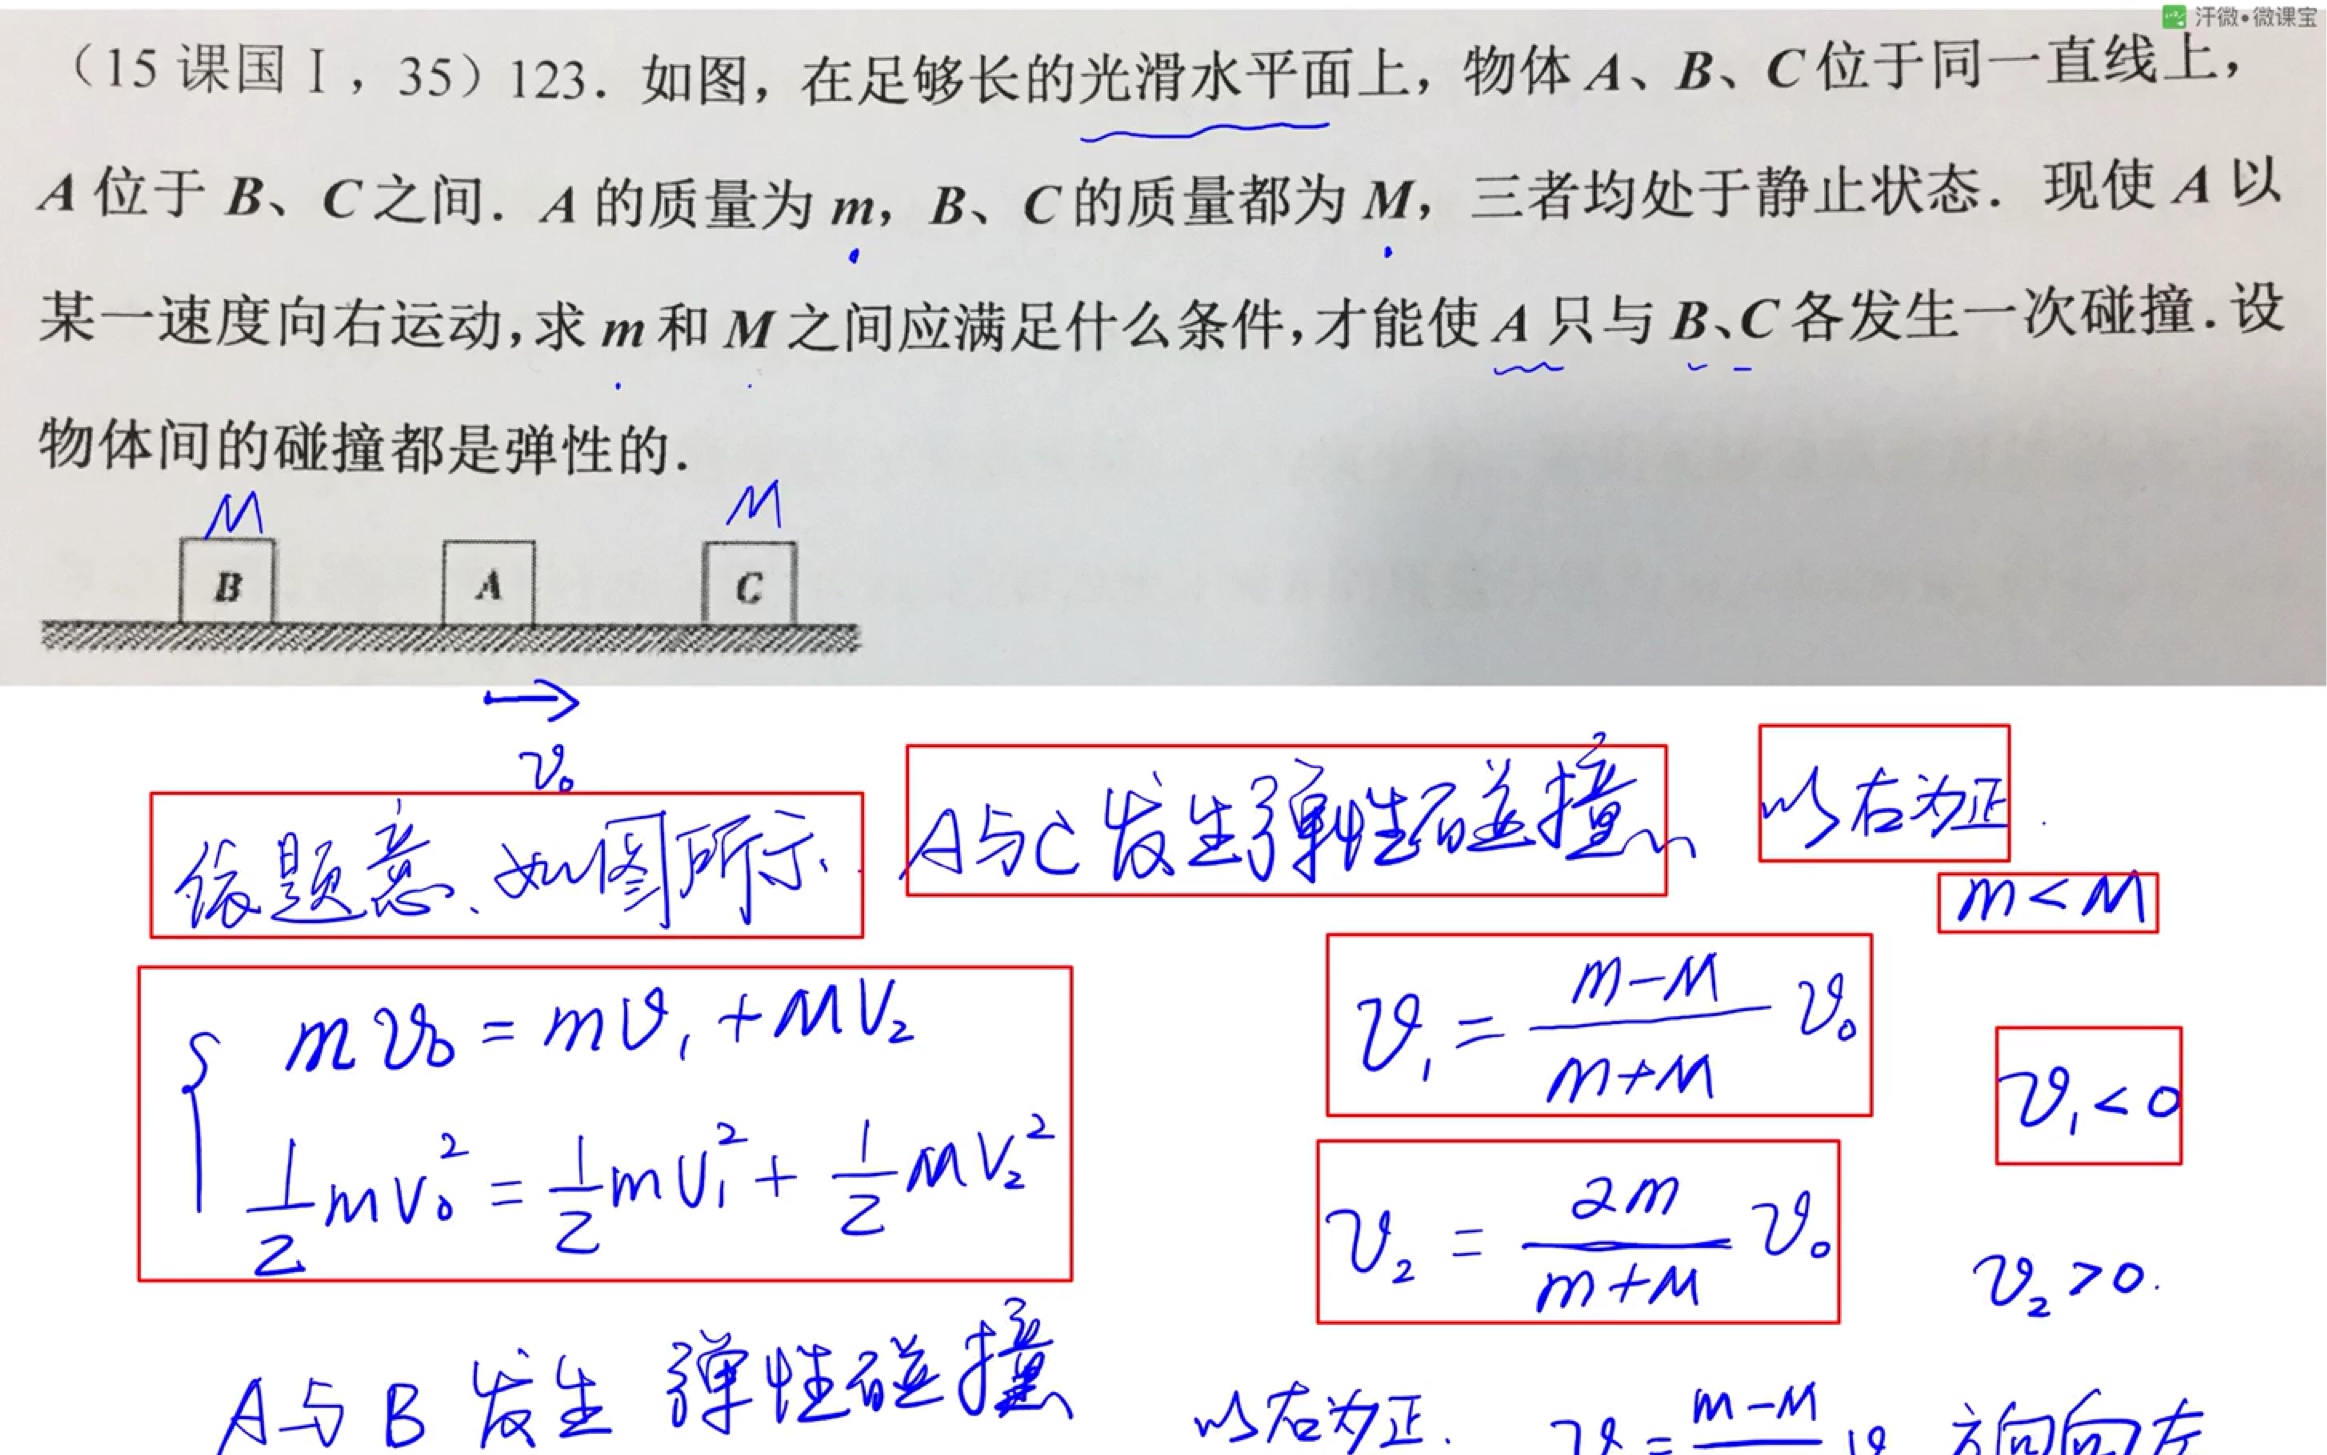 汗微•微课宝
（15 课国Ⅰ，35）123．如图，在足够长的光滑水平面上，物体 A、B、C 位于同一直线上，
A 位于 B、C 之间．A 的质量为 m，B、C 的质量都为 M，三者均处于静止状态．现使 A 以
某一速度向右运动，求 m 和 M 之间应满足什么条件，才能使 A 只与 B、C 各发生一次碰撞．设
物体间的碰撞都是弹性的．
M M
B A C
v₀
依题意、如图所示、A与C发生弹性碰撞、以右为正．
m<M
mv₀=mv₁+MV₂
v₁=(m-M)/(m+M) v₀
v₁<0
1/2 mv₀²=1/2 mv₁²+1/2 MV₂²
v₂=2m/(m+M) v₀
v₂>0.
A与B发生弹性碰撞 以右为正．
m-M
方向向左